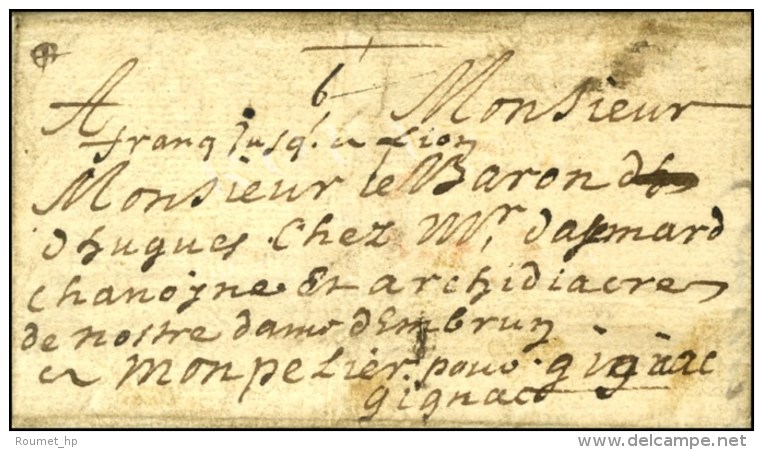 6
A Monsieur
franq Jusq. a Lion
Monsieur le Baron
dhugues Chez Mr. daymard
chanoyne Et archidiacre
de nostre dame dEmbrun
a monpelier pour gignac
gignac
Roumet_hp
www.delcampe.net